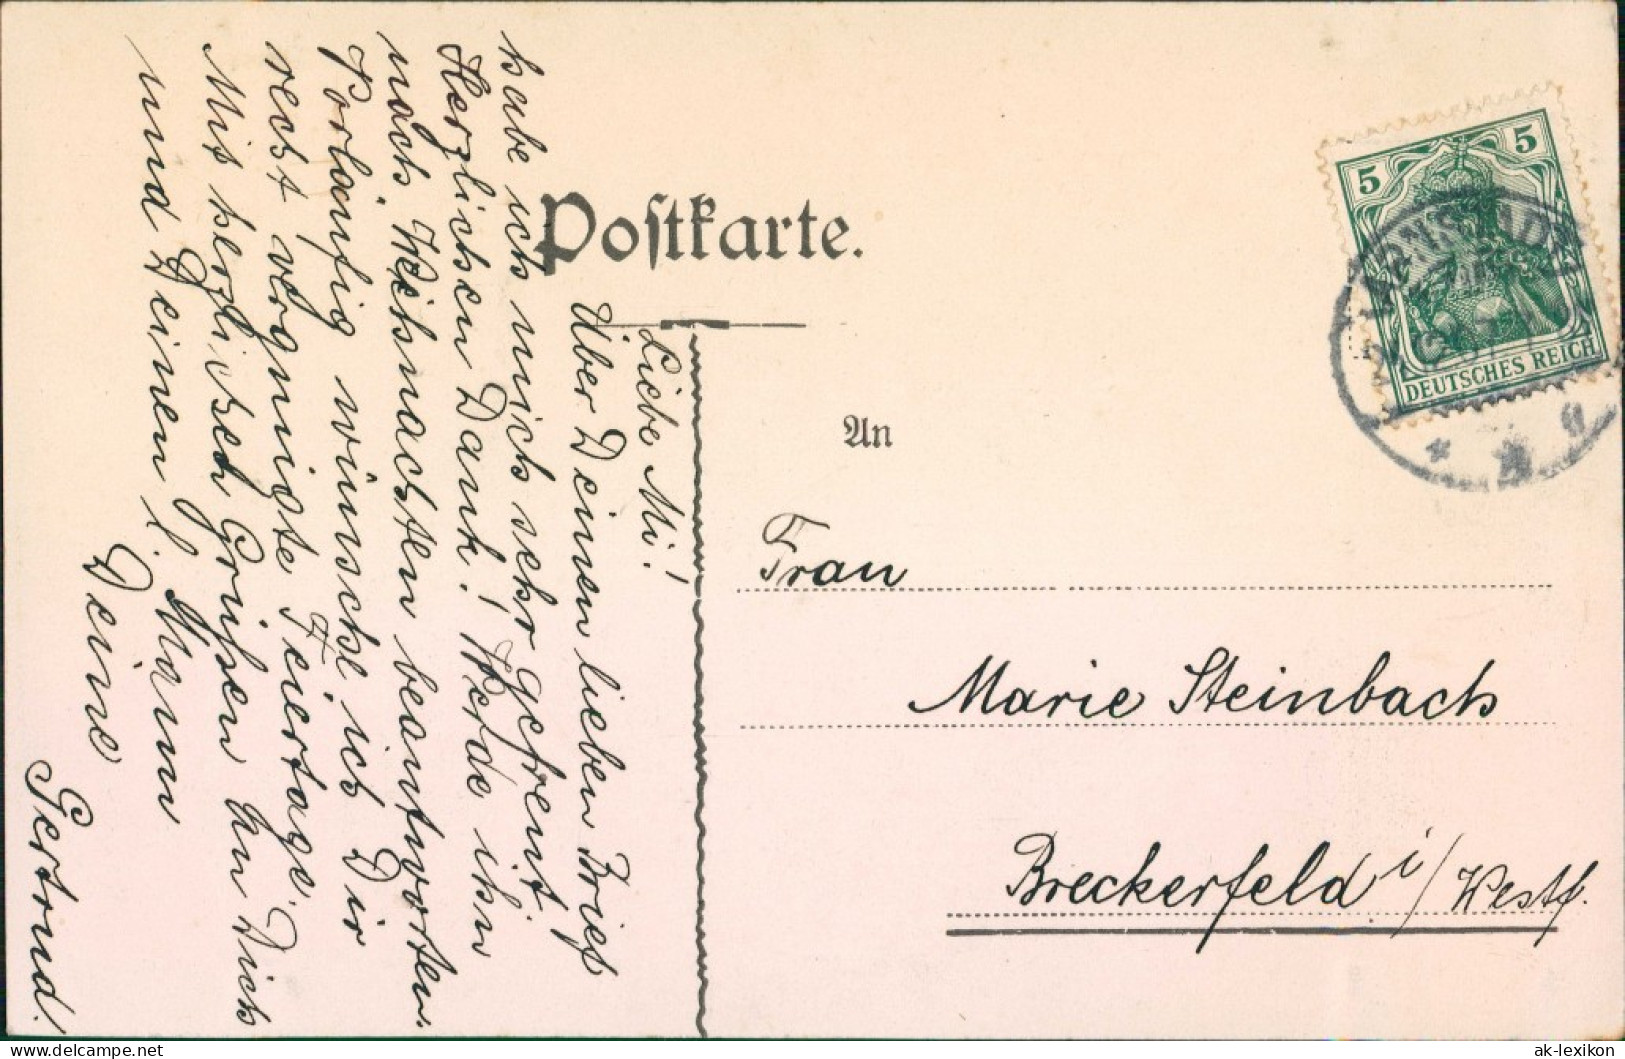 Postkarte.
Liebe Mi!
Über Deinen lieben Brief
habe ich mich sehr gefreut.
Herzlichsen Dank! Werde ihn
nach Weihnachten beantworten.
Vorläufig wünsche ich Dir
recht vergnügte Feiertage.
Mit herzlichen Grüßen an Dich
und Deinen l. Mann
Deine
Gertrud.
5
5
DEUTSCHES REICH
ARNSTADT
An
Frau
Marie Steinbach
Breckerfeld i/Westf.
ak-ansichtskarten.de
ak-lexikon